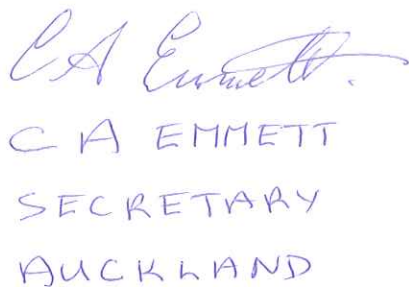 C A Emmett.
C A EMMETT
SECRETARY
AUCKLAND